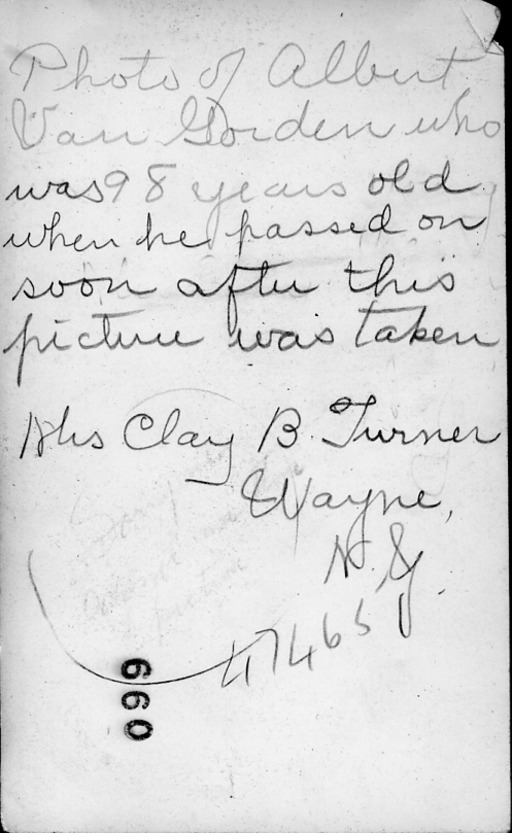 Photo of Albert
Van Gorden who
was 98 years old
when he passed on
soon after this
picture was taken
Mrs Clay B. Turner
Wayne,
N.Y.
47465
099